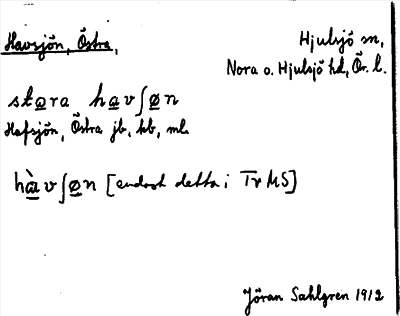 Havsjön, Östra,
Hjulsjö sn,
Nora o. Hjulsjö hd, Ör. l.
stɑra hɑvʃøn
Hafsjön, Östra jb, kb, ml.
hàvʃøn [endast detta i Tr MS]
Jöran Sahlgren 1912